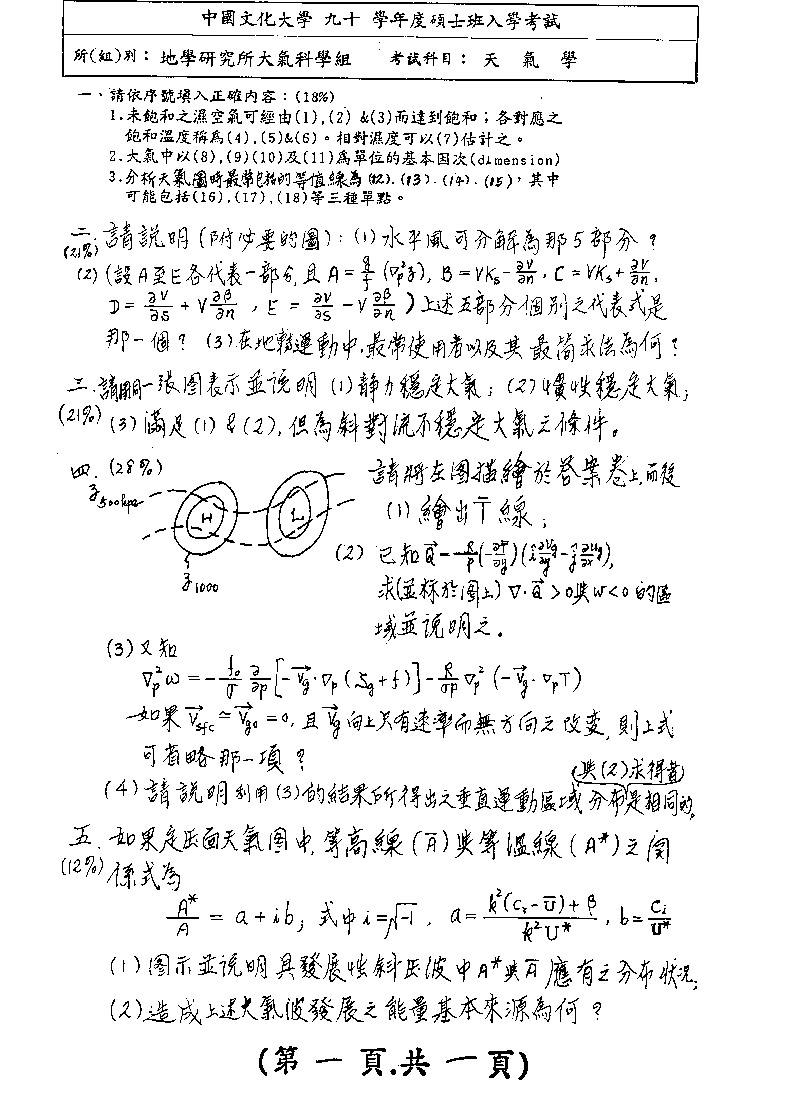 中國文化大學 九十 學年度碩士班入學考試
所(組)別：地學研究所大氣科學組 考試科目：天 氣 學
一、請依序號填入正確內容：(18%)
1.未飽和之濕空氣可經由(1),(2) &(3)而達到飽和；各對應之
飽和溫度稱為(4),(5)&(6)。相對濕度可以(7)估計之。
2.大氣中以(8),(9)(10)及(11)為單位的基本因次(dimension)
3.分析天氣圖時最常包括的等值線為(12).(13).(14).(15)，其中
可能包括(16),(17),(18)等三種單點。
二. 請說明(附必要的圖)：(1)水平風可分解為那5部分？
(21%)
(2)(設A至E各代表一部分,且A=g/f(∇p²z), B=VKs-∂V/∂n, C=VKs+∂V/∂n,
D=∂V/∂s+V∂β/∂n, E=∂V/∂s-V∂β/∂n)上述五部分個別之代表式是
那一個？(3)在地轉運動中,最常使用者以及其最簡求法為何？
三.請用同一張圖表示並說明(1)靜力穩定大氣；(2)慣性穩定大氣；
(21%) (3)滿足(1)&(2),但為斜對流不穩定大氣之條件。
四.(28%) 請將左圖描繪於答案卷上,而後
z500hpa H L
z1000
(1)繪出T̄線；
(2) 已知Q⃗=-R/p(-∂T/∂y)(î∂Vg/∂y-ĵ∂Vg/∂x),
求(並標於圖上)∇·Q⃗>0與W<0的區
域並說明之。
(3)又知
∇p²ω=-f₀/σ ∂/∂p[-V⃗g·∇p(ζg+f)]-R/σp ∇p²(-V⃗g·∇pT)
如果V⃗sfc≃V⃗g0=0,且V⃗g向上只有速率而無方向之改變,則上式
可省略那一項？
(4)請說明利用(3)的結果所得出之垂直運動區域(與(2)求得者)分布是相同的。
五.如果定正面天氣圖中,等高線(A)與等溫線(A*)之關
(12%) 係式為
A*/A=a+ib; 式中i=√-1, a=k²(cr-U̅)+β/k²U*, b=Ci/U*
(1)圖示並說明具發展性斜正波中A*與A應有之分布狀況;
(2)造成上述大氣波發展之能量基本來源為何？
(第 一 頁.共 一 頁)